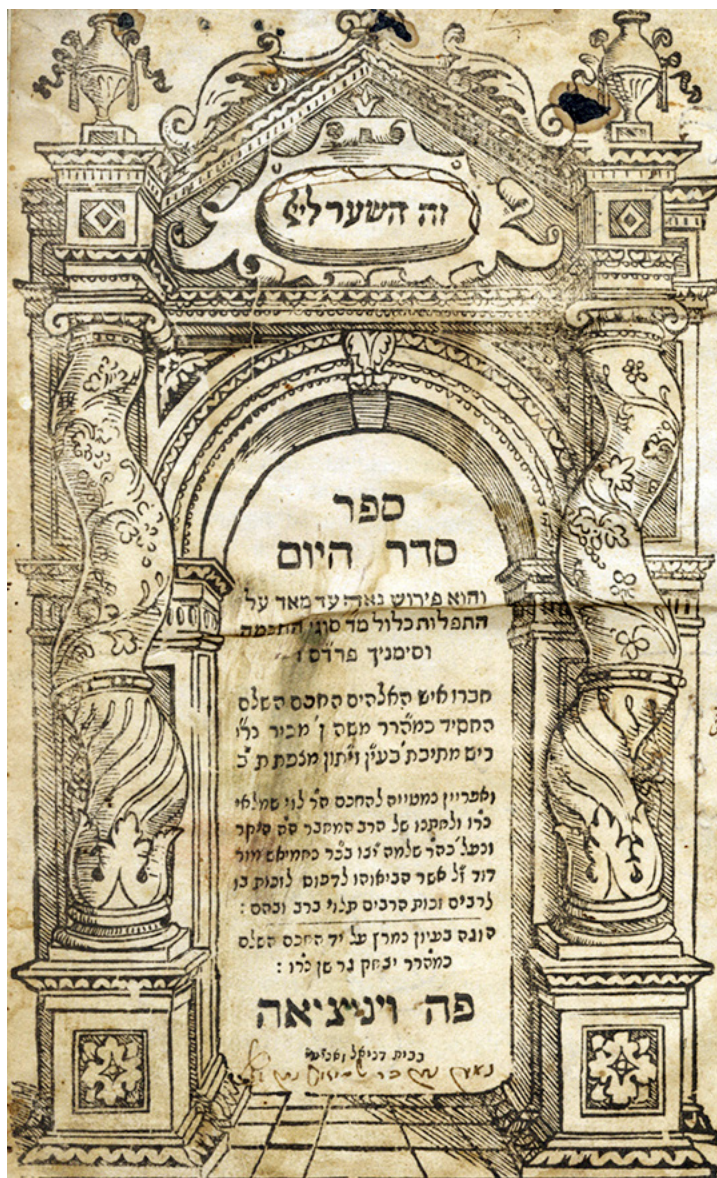 זה השער לייי
ספר
סדר היום
והוא פירוש נאה עד מאד על
התפלות כלול מד סוגי החכמה
וסימניך פרד״ס :
חברו איש האלהים החכם השלם
החסיד כמהרר משה ן׳ מכיר נר״ו
ריש מתיבת׳ בעין זיתון מצפת ת״ב
ואפריין נמטייה להחכם הר׳ לוי שמלאי
נר״ו ולחתנו של הרב המחבר ה״ה היקר
ונעל׳ כה״ר שלמה יצו בכ״ר נחמיאש מור
דוד ז״ל אשר הביאוהו לדפוס לזכות בו
לרבים וזכות הרבים תלוי ברב ובהם :
הוגה בעיון נמרץ על יד החכם השלם
כמהרר יצחק גרשן נר״ו :
פה ויניציאה
בבית דניאל זאניטי